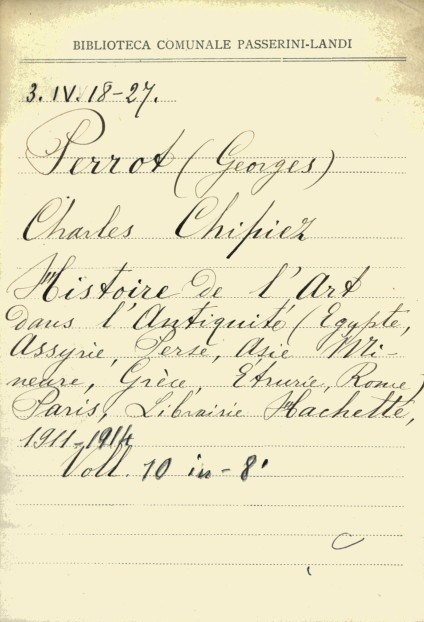 BIBLIOTECA COMUNALE PASSERINI-LANDI
3. IV. 18-27.
Perrot (Georges)
Charles Chipiez
Histoire de l'Art
dans l'Antiquité (Egypte,
Assyrie, Perse, Asie Mi-
neure, Grèce, Etrurie, Rome)
Paris, Librairie Hachette,
1911-1914
Voll. 10 in-8°